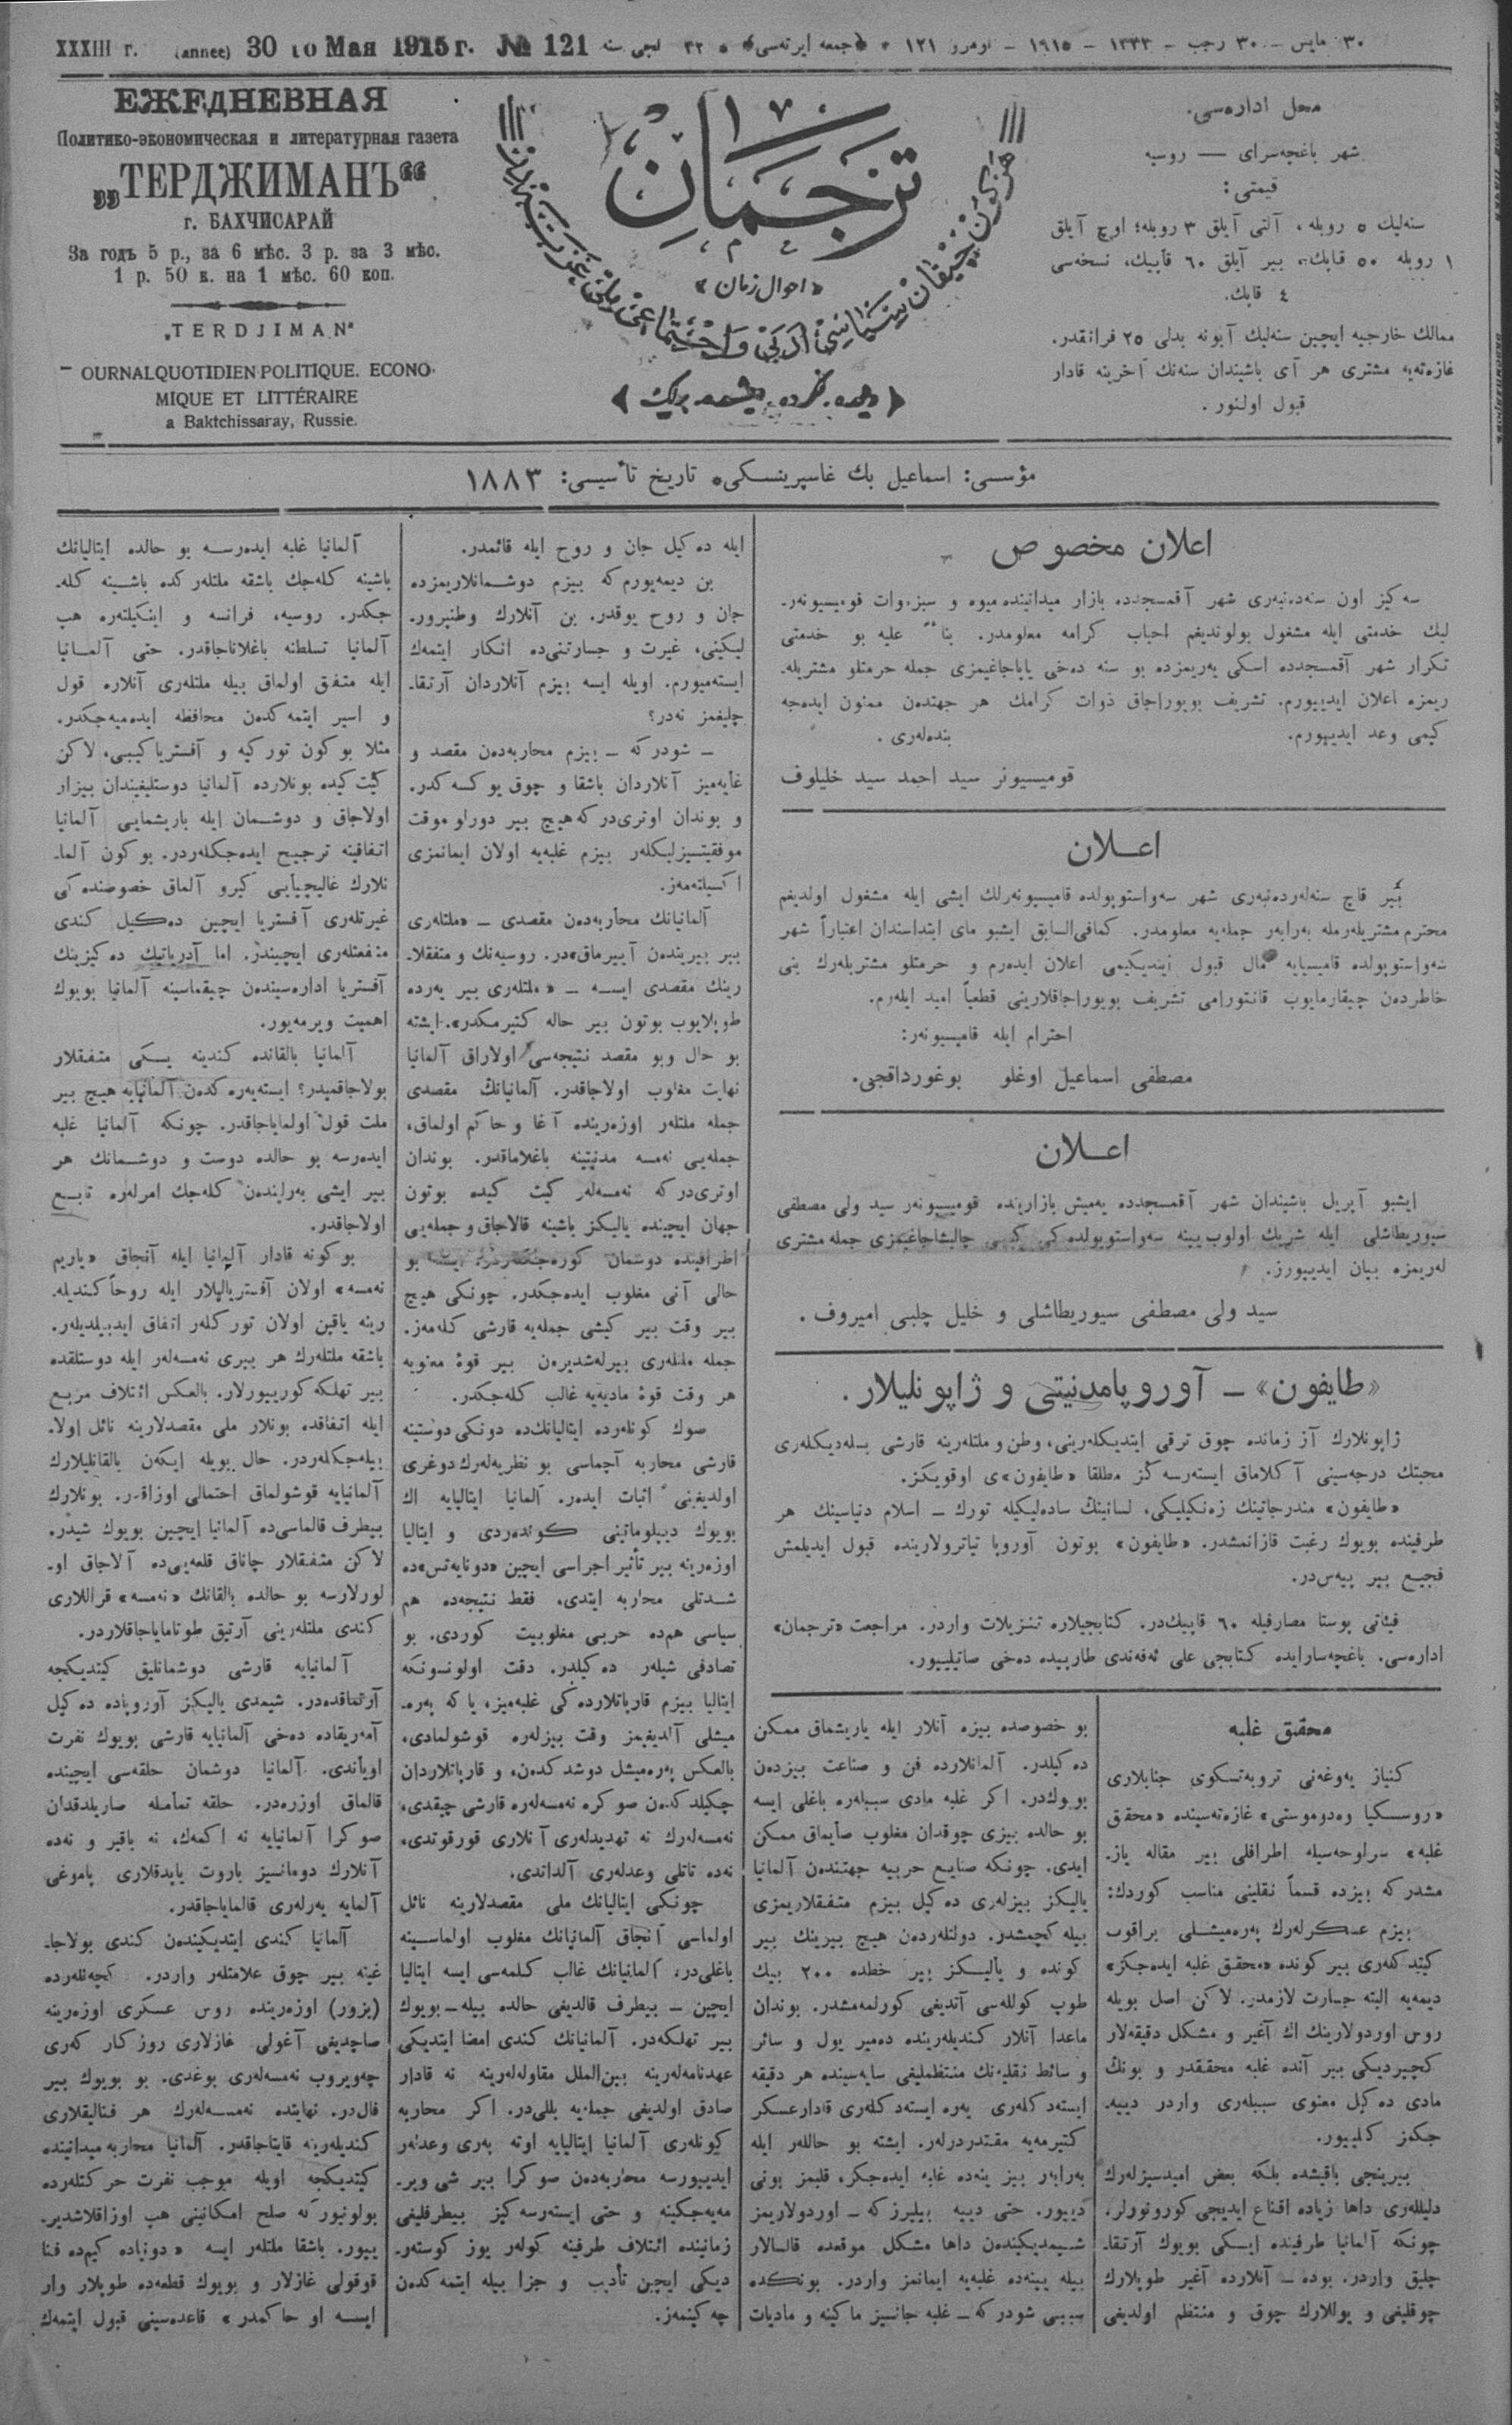 XXXIII г. (annee) 30 го Мая 1915 г. № 121
٣٠ مايس – ٣٠ رجب – ١٣٣٣ – ١٩١٥ – نومرو ١٢١ * «جمعه ايرته‌سى» * ٣٢ نجى سنه
ЕЖЕДНЕВНАЯ
Политико-экономическая и литературная газета
„ТЕРДЖИМАНЪ“
г. БАХЧИСАРАЙ
За годъ 5 р., за 6 мѣс. 3 р. за 3 мѣс.
1 р. 50 к. на 1 мѣс. 60 коп.
„TERDJIMAN“
OURNAL QUOTIDIEN POLITIQUE. ECONO-
MIQUE ET LITTÉRAIRE
a Baktchissaray, Russie.
ترجمان
«احوال زمان»
هر كون چيقان سياسى، ادبى و اجتماعى ملى غزته‌در
«ديلده، فكرده، ايشده بيرلك»
محل اداره‌سى.
شهر باغچه‌سراى — روسيه
قيمتى:
سنه‌ليك ٥ روبله، آلتى آيلق ٣ روبله؛ اوچ آيلق
١ روبله ٥٠ قاپك، بير آيلق ٦٠ قاپيك، نسخه‌سى
٤ قاپك.
ممالك خارجيه ايچين سنه‌ليك آبونه بدلى ٢٥ فرانقدر.
غازه‌ته‌يه مشترى هر آى باشيندان سنه‌نك آخرينه قادار
قبول اولنور.
مؤسسى: اسماعيل بك غاسپرينسكى* تاريخ تأسيسى: ١٨٨٣
اعلان مخصوص
سه‌كيز اون سنه‌ده‌نبه‌رى شهر آقمسجدده بازار ميدانينده ميوه و سبزه‌وات قوميسيونه‌ر-
ليك خدمتى ايله مشغول بولونديغم احباب كرامه معلومدر. بناءً عليه بو خدمتى
تكرار شهر آقمسجدده اسكى يه‌ريمزده بو سنه ده‌خى ياپاجاغيمزى جمله حرمتلو مشتريله-
ريمزه اعلان ايدييورم. تشريف بويوراجاق ذوات كرامك هر جهتدن ممنون ايده‌جه
كيمى وعد ايدييورم. بنده‌لرى.
قوميسيونر سيد احمد سيد خليلوف
اعــلان
بير قاچ سنه‌لرده‌نبه‌رى شهر سه‌واستوپولده قاميسيونه‌رلك ايشى ايله مشغول اولديغم
محترم مشتريله‌رمله به‌رابه‌ر جمله‌يه معلومدر. كمافى‌السابق ايشبو ماى ابتداسندان اعتباراً شهر
سه‌واستوپولده قاميسيايه مال قبول ايتديكيمى اعلان ايده‌رم و حرمتلو مشتريله‌رك بنى
خاطردن چيقارمايوب قانتورامى تشريف بويوراجاقلارينى قطعياً اميد ايله‌رم.
احترام ايله قاميسيونه‌ر:
مصطفى اسماعيل اوغلو بوغورداقجى.
اعــلان
ايشبو آپريل باشيندان شهر آقمسجدده يه‌ميش بازارينده قوميسيونه‌ر سيد ولى مصطفى
سيوريطاشلى ايله شريك اولوب يينه سه‌واستوپولده كى كيبى چاليشاجاغيمزى جمله مشترى
له‌ريمزه بيان ايدييورز.
سيد ولى مصطفى سيوريطاشلى و خليل چلبى اميروف.
«طايفون» – آوروپا مدنيتى و ژاپونليلار.
ژاپونلارك آز زمانده چوق ترقى ايتديكله‌رينى، وطن و ملتله‌رينه قارشى بسله‌ديكله‌رى
محبتك درجه‌سينى آكلاماق ايسته‌رسه‌كز مطلقا «طايفون»ى اوقويكز.
«طايفون» مندرجاتينك زه‌نكيليكى، لسانينك ساده‌ليكيله تورك – اسلام دنياسينك هر
طرفينده بويوك رغبت قازانمشدر. «طايفون» بوتون آوروپا تياترولارينده قبول ايديلمش
فجيع بير پيه‌س‌در.
فيئاتى پوستا مصارفيله ٦٠ قاپيك‌در. كتابجيلاره تنزيلات واردر. مراجعت «ترجمان»
اداره‌سى. باغچه‌سارايده كتابجى على ئه‌فه‌ندى طارپيده ده‌خى صاتيلييور.
محقق غلبه
كنياز يه‌وغه‌نى تروبه‌تسكوى جنابلارى
«روسسكيا وه‌دوموستى» غازه‌ته‌سينده «محقق
غلبه» سراوحه‌سيله اطرافلى بير مقاله ياز-
مشدر كه بيزده قسماً نقلينى مناسب كوردك:
بيزم عسكرله‌رك په‌ره‌ميشلى براقوب
كيتدكله‌رى بير كونده «محقق غلبه ايده‌جكز»
ديمه‌يه البته جسارت لازمدر. لاكن اصل بويله
روس اوردولارينك اك آغير و مشكل دقيقه‌لار
كچيرديكى بير آنده غلبه محققدر و بونك
مادى ده‌كيل معنوى سببله‌رى واردر دييه-
جكمز كلييور.
بيرينجى باقيشده بلكه بعض اميدسيزله‌رك
دليلله‌رى داها زياده اقناع ايديجى كورونورلر.
چونكه آلمانيا طرفينده ايسكى بويوك آرتقا-
چليق واردر. بوده – آنلارده آغير طوپلارك
چوقليغى و يوللارك چوق و منتظم اولديغى
بو خصوصده بيزه آنلار ايله ياريشماق ممكن
ده‌كيلدر. آلمانلارده فن و صناعت بيزده‌ن
بويوك‌در. اكر غلبه مادى سببله‌ره باغلى ايسه
بو حالده بيزى چوقدان مغلوب صايماق ممكن
ايدى. چونكه صنايع حربيه جهتندن آلمانيا
ياليكز بيزله‌رى ده‌كيل بيزم متفقلاريمزى
بيله كچمشدر. دولتله‌رده‌ن هيچ بيرينك بير
كونده و ياليكز بير خطده ٢٠٠ بيك
طوپ كولله‌سى آتديغى كورلمه‌مشدر. بوندان
ماعدا آنلار كنديله‌رينده ده‌مير يول و سائر
و سائط نقليه‌نك منتظمليغى سايه‌سينده هر دقيقه
ايسته‌دكله‌رى يه‌ره ايسته‌دكله‌رى قادار عسكر
كتيرمه‌يه مقتدردرلر. ايشته بو حاللر ايله
به‌رابه‌ر بيز ينه‌ده غلبه ايده‌جكز، قلبمز بونى
دييور. حتى دييه بيليرز كه – اوردولاريمز
شيمديكيندن داها مشكل موقعده قالسالار
بيله يينه‌ده غلبه‌يه ايمانمز واردر. بونكده
سببى شودر كه – غلبه جانسيز ماكينه و ماديات
ايله ده‌كيل جان و روح ايله قائمدر.
بن ديمه‌يورم كه بيزم دوشمانلاريمزده
جان و روح يوقدر. بن آنلارك وطنپرور-
ليكينى، غيرت و جسارتنى‌ده انكار ايتمه‌ك
ايسته‌ميورم. اويله ايسه بيزم آنلاردان آرتقا-
چليغمز نه‌در؟
– شودر كه – بيزم محاربه‌دن مقصد و
غايه‌ميز آنلاردان باشقا و چوق يوكسه‌كدر.
و بوندان اوترى‌در كه هيچ بير دورلو موقت
موفقيتسزليكلر بيزم غلبه‌يه اولان ايمانمزى
اكسيلته‌مه‌ز.
آلمانيانك محاربه‌دن مقصدى – «ملتله‌رى
بير بيريندن آييرماق»در. روسيه‌نك و متفقلا-
رينك مقصدى ايسه – «ملتله‌رى بير يه‌رده
طوپلايوب بوتون بير حاله كتيرمكدر». ايشته
بو حال و بو مقصد نتيجه‌سى اولاراق آلمانيا
نهايت مغلوب اولاجاقدر. آلمانيانك مقصدى
جمله ملتلر اوزه‌رينده آغا و حاكم اولماق،
جمله‌يى نه‌مسه مدنيتينه باغلاماقدر. بوندان
اوترى‌در كه نه‌مسه‌لر كيت كيده بوتون
جهان ايچينده ياليكز باشينه قالاجاق و جمله‌يى
اطرافينده دوشمان كوره‌جكله‌ردر. ايشته بو
حالى آنى مغلوب ايده‌جكدر. چونكى هيچ
بير وقت بير كيشى جمله‌يه قارشى كله‌مه‌ز.
جمله ملتله‌رى بيرله‌شديره‌ن بير قوۀ معنويه
هر وقت قوۀ ماديه‌يه غالب كله‌جكدر.
صوك كونله‌رده ايتاليانك‌ده دونكى دوستينه
قارشى محاربه آچماسى بو نظريه‌له‌رك دوغرى
اولديغنى اثبات ايده‌ر. آلمانيا ايتاليايه اك
بويوك ديپلوماتينى كونده‌ردى و ايتاليا
اوزه‌رينه بير تأثير اجراسى ايچين «دونايه‌تس»ده
شدتلى محاربه ايتدى. فقط نتيجه‌ده هم
سياسى هم‌ده حربى مغلوبيت كوردى. بو
تصادفى شيلر ده‌كيلدر. دقت اولونسونكه
ايتاليا بيزم قارپاتلارده كى غلبه‌ميز، يا كه په‌ره-
ميشلى آلديغيمز وقت بيزله‌ره قوشولمادى،
بالعكس په‌ره‌ميشل دوشدكده‌ن، و قارپاتلاردان
چكيلدكده‌ن صوكره نه‌مسه‌له‌ره قارشى چيقدى،
نه‌مسه‌له‌رك نه تهديدله‌رى آنلارى قورقوتدى،
نه‌ده تاتلى وعدله‌رى آلداتدى.
چونكى ايتاليانك ملى مقصدلارينه نائل
اولماسى آنجاق آلمانيانك مغلوب اولماسينه
باغلى‌در، آلمانيانك غالب كلمه‌سى ايسه ايتاليا
ايچين – بيطرف قالديغى حالده بيله – بويوك
بير تهلكه‌در. آلمانيانك كندى امضا ايتديكى
عهدنامه‌له‌رينه بين‌الملل مقاوله‌له‌رينه نه قادار
صادق اولديغى جمله‌يه بللى‌در. اكر محاربه
كونله‌رى آلمانيا ايتاليايه اوته به‌رى وعدلر
ايدييورسه محاربه‌دن صوكرا بير شى وير-
مه‌يه‌جكينه و حتى ايسته‌رسه‌كيز بيطرفليغى
زمانينده ائتلاف طرفينه كولر يوز كوستر-
ديكى ايچين تأديب و جزا بيله ايتمه‌كدن
چه‌كينمه‌ز.
آلمانيا غلبه ايده‌رسه بو حالده ايتاليانك
باشينه كله‌جك باشقه ملتلر كده باشينه كله-
جكدر. روسيه، فرانسه و اينكيلتره هپ
آلمانيا تسلطنه باغلاناجاقدر. حتى آلمانيا
ايله متفق اولماق بيله ملتله‌رى آنلاره قول
و اسير ايتمه‌كدن محافظه ايده‌ميه‌جكدر.
مثلا بوكون توركيه و آفستريا كيبى، لاكن
كيت كيده بونلارده آلمانيا دوستليغيندان بيزار
اولاجاق و دوشمان ايله باريشمايى آلمانيا
اتفاقينه ترجيح ايده‌جكله‌ردر. بوكون آلما-
نلارك غاليچيايى كيرو آلماق خصوصنده كى
غيرتله‌رى آفستريا ايچين ده‌كيل كندى
منفعتله‌رى ايچيندر. اما آدرياتيك ده‌كيزينك
آفستريا اداره‌سيندن چيقماسينه آلمانيا بويوك
اهميت ويرمه‌يور.
آلمانيا بالقانده كندينه يسكى متفقلار
بولاجاقميدر؟ ايسته‌يه‌ره‌كدن آلمانيايه هيچ بير
ملت قول اولماياجاقدر. چونكه آلمانيا غلبه
ايده‌رسه بو حالده دوست و دوشمانك هر
بير ايشى به‌رليندن كله‌جك امرله‌ره تابع
اولاجاقدر.
بوكونه قادار آلمانيا ايله آنجاق «ياريم
نه‌مسه» اولان آفستريالىلار ايله روحاً كنديله-
رينه ياقين اولان توركلر اتفاق ايديلديلر.
باشقه ملتله‌رك هر بيرى نه‌مسه‌لر ايله دوستلقده
بير تهلكه كورييورلار. بالعكس ائتلاف مربع
ايله اتفاقده بونلار ملى مقصدلارينه نائل اولا-
بيله‌جكله‌ردر. حال بويله ايكه‌ن بالقانليلارك
آلمانيايه قوشولماق احتمالى اوزاقدر. بونلارك
بيطرف قالماسى‌ده آلمانيا ايچين بويوك شيدر.
لاكن متفقلار چاناق قلعه‌يى‌ده آلاجاق او-
لورلارسه بو حالده بالقانك «نه‌مسه» قراللارى
كندى ملتله‌رينى آرتيق طوتاماياجاقلاردر.
آلمانيايه قارشى دوشمانليق كيتديكجه
آرتماقده‌در. شيمدى ياليكز آوروپاده ده‌كيل
آمه‌ريقاده ده‌خى آلمانيايه قارشى بويوك نفرت
اوياندى. آلمانيا دوشمان حلقه‌سى ايچينده
قالماق اوزره‌در. حلقه تماميله صاريلدقدان
صوكرا آلمانيايه نه اكمه‌ك، نه باقير و نه‌ده
آنلارك دومانسيز باروت ياپدقلارى پاموغى
آلمايه يه‌رله‌رى قالماياجاقدر.
آلمانيا كندى ايتديكيندن كندى بولاجا-
غينه بير چوق علامتلر واردر. كچه‌نله‌رده
(بزور) اوزه‌رينده روس عسكرى اوزه‌رينه
صاچديغى آغولى غازلارى روزكار كه‌رى
چه‌ويروب نه‌مسه‌له‌رى بوغدى. بو بويوك بير
فال‌در. نهايتده نه‌مسه‌له‌رك هر فناليقلارى
كنديله‌رينه قايتاجاقدر. آلمانيا محاربه ميدانينده
كيتديكجه اويله موجب نفرت حركتله‌رده
بولونيور كه صلح امكانينى هپ اوزاقلاشدير-
ييور. باشقا ملتلر ايسه «دونياده كيم‌ده فنا
قوقولى غازلار و بويوك قطعه‌ده طوپلار وار
ايسه او حاكمدر» قاعده‌سينى قبول ايتمه‌ك